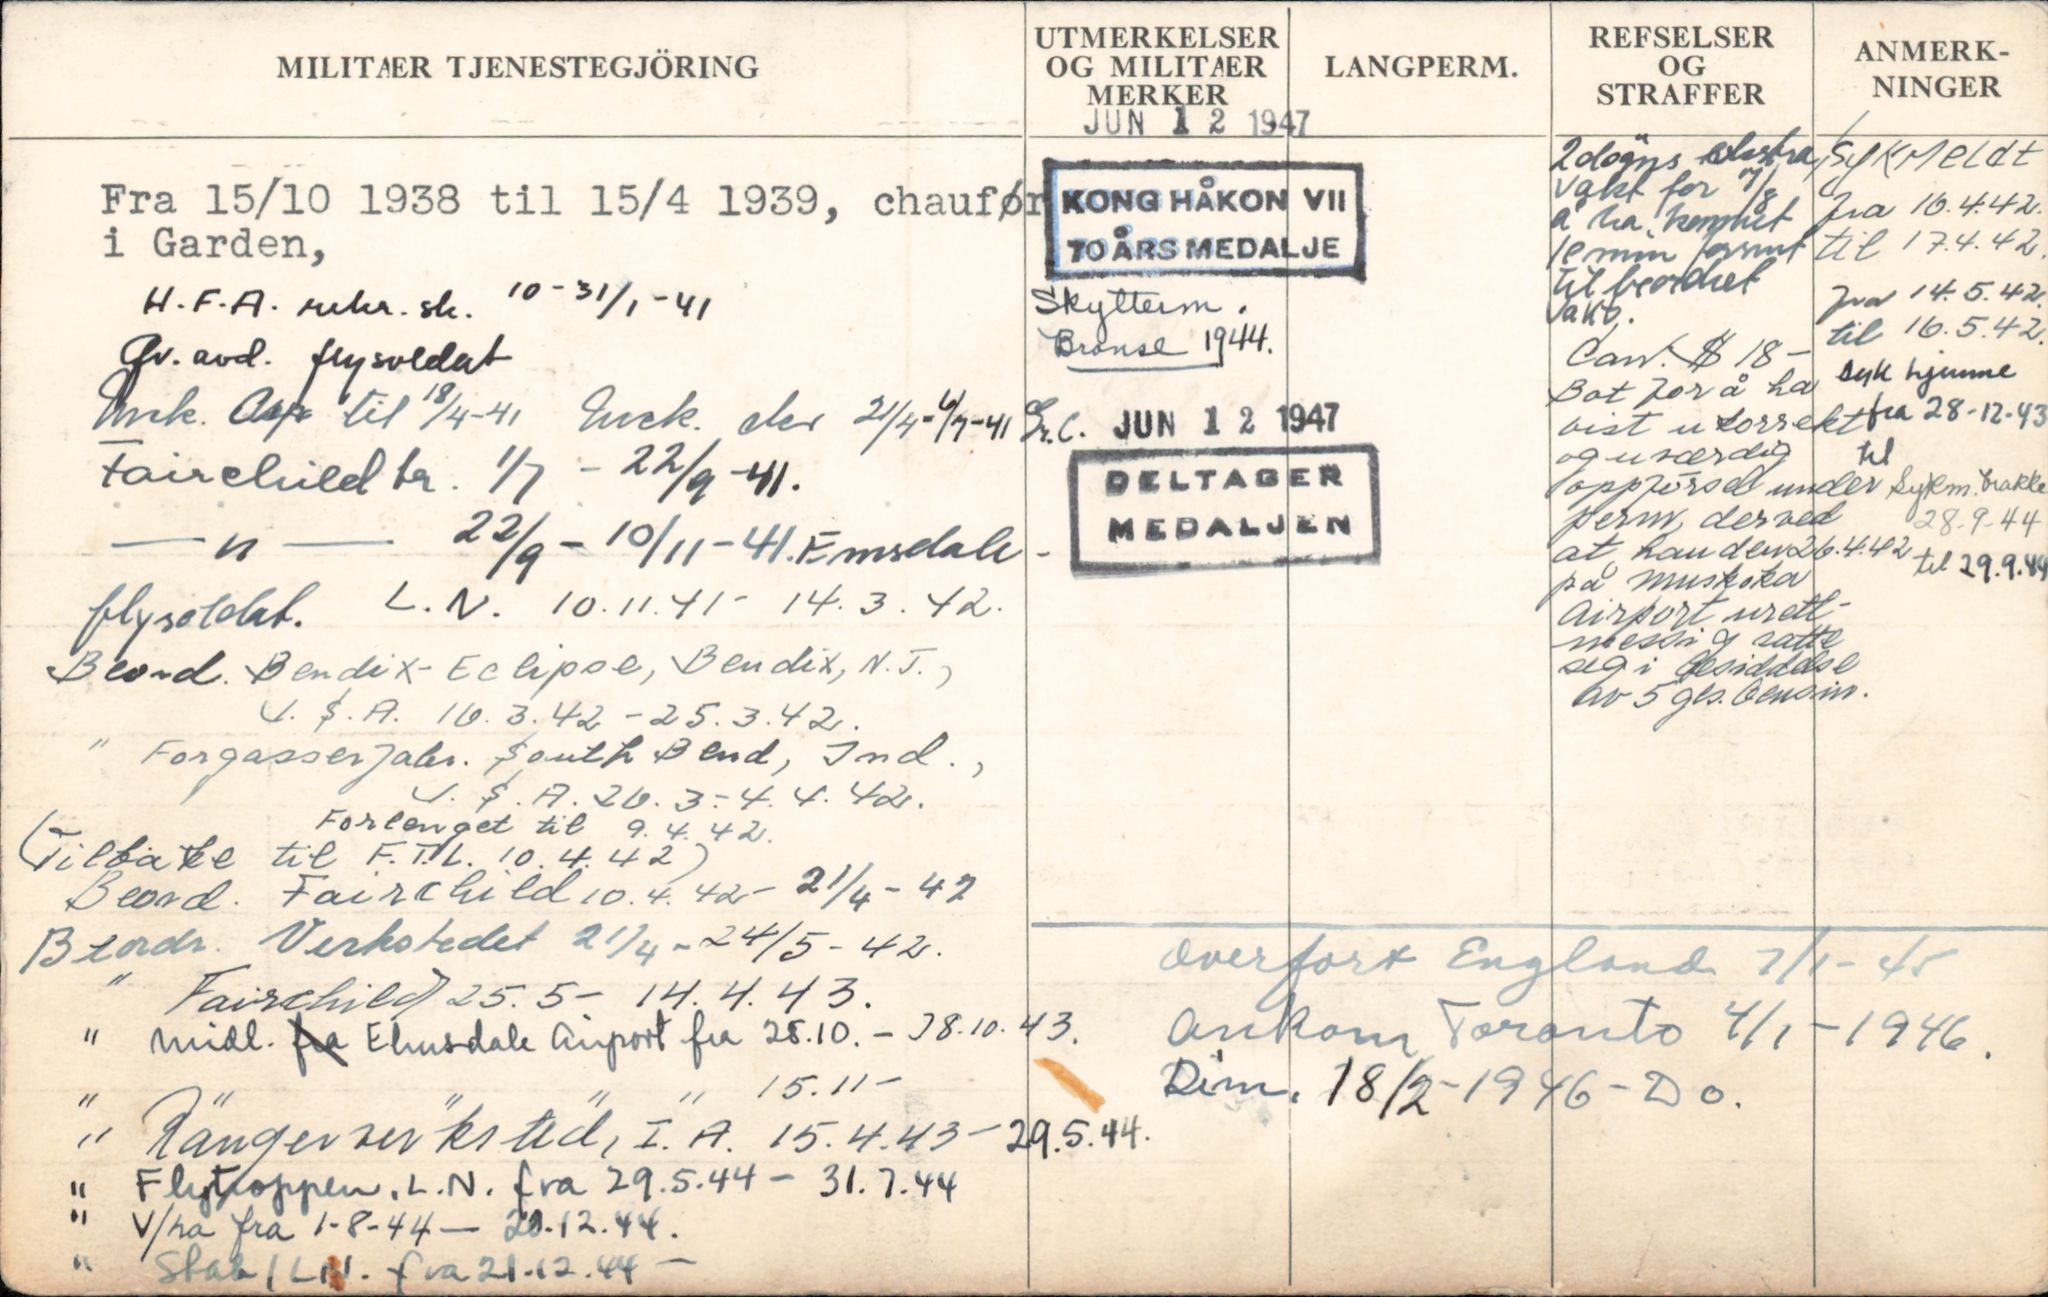 MILITÆR TJENESTEGJÖRING
Fra 15/10 1938 til 15/4 1939, chaufør
i Garden,
H.F.A. rekr. sk. 10-31/1-41
Gv. avd. flysoldat
til 18/4-41 21/4-4/7-41
Fairchild tr. 1/7 - 22/9-41.
— " — 22/9 - 10/11-41. Emsdale -
flysoldat. L.N. 10.11.41- 14.3.42.
Beord. Bendix-Eclipse, Bendix, N.J.,
U.S.A. 16.3.42-25.3.42.
" Forgasserfabr. South Bend, Ind.,
U.S.A. 26.3-4.4.42.
Forlenget til 9.4.42.
(Tilbake til F.T.L. 10.4.42)
Beord. Fairchild 10.4.42- 21/4-42
Beordr. Verkstedet 21/4-24/5-42.
" Fairchild 25.5- 14.4.43.
" midl. fra Elmsdale Airport fra 25.10.-28.10.43.
" " " " 15.11-
" Rangerverksted, I.A. 15.4.43-29.5.44.
" Flytroppen. L.N. fra 29.5.44- 31.7.44
" V/ha fra 1-8-44— 20.12.44.
" Stab/LN. fra 21.12.44-
UTMERKELSER
OG MILITÆR
MERKER
JUN 12 1947
KONG HÅKON VII
70 ÅRS MEDALJE
Skytterm.
Bronse 1944.
JUN 12 1947
DELTAGER
MEDALJEN
LANGPERM.
REFSELSER
OG
STRAFFER
2 døgns ekstra
vakt for 7/8
å ha kommet
10 min forsent
til beordret
vakt.
Can. $ 18-
Bot for å ha
vist ukorrekt
og uværdig
oppførsel under
perm, derved
at han den 26.4.42
på Muskoka
Airport urett-
messig satte
seg i besiddelse
av 5 gls. bensin.
ANMERK-
NINGER
Sykmeldt
fra 10.4.42.
til 17.4.42.
fra 14.5.42.
til 16.5.42.
syk hjemme
fra 28-12-43
til
Sykm. brakke
28-9-44
til 29.9.44
Overført England 7/1-45
Ankom Toronto 4/1-1946.
Dim. 18/2-1946-Do.